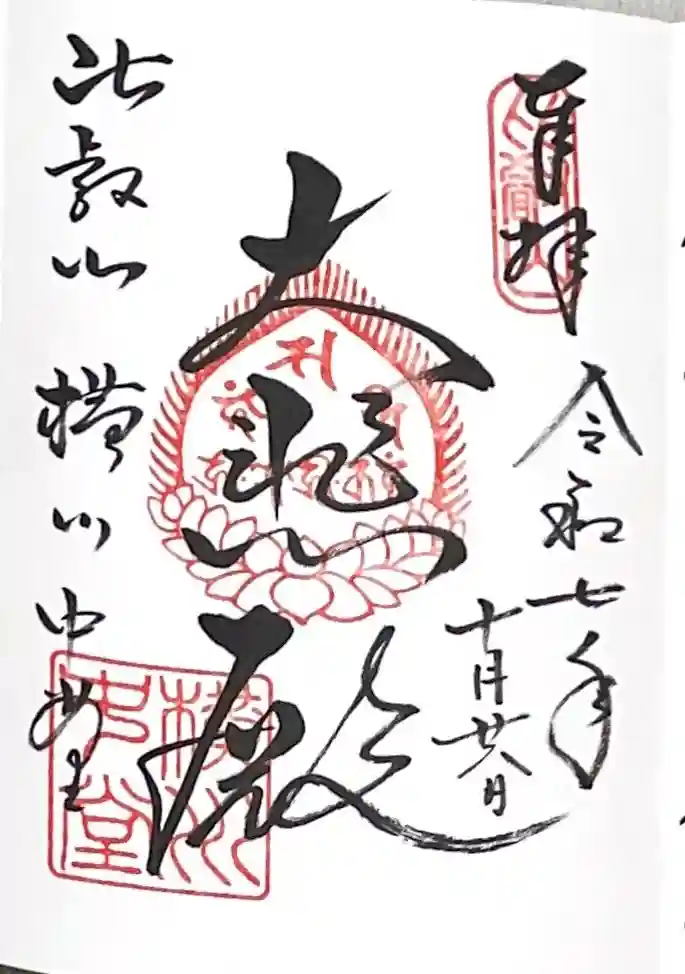 奉拝
令和七年
十月廿八日
大悲殿
比叡山 横川 中堂
横川
中堂